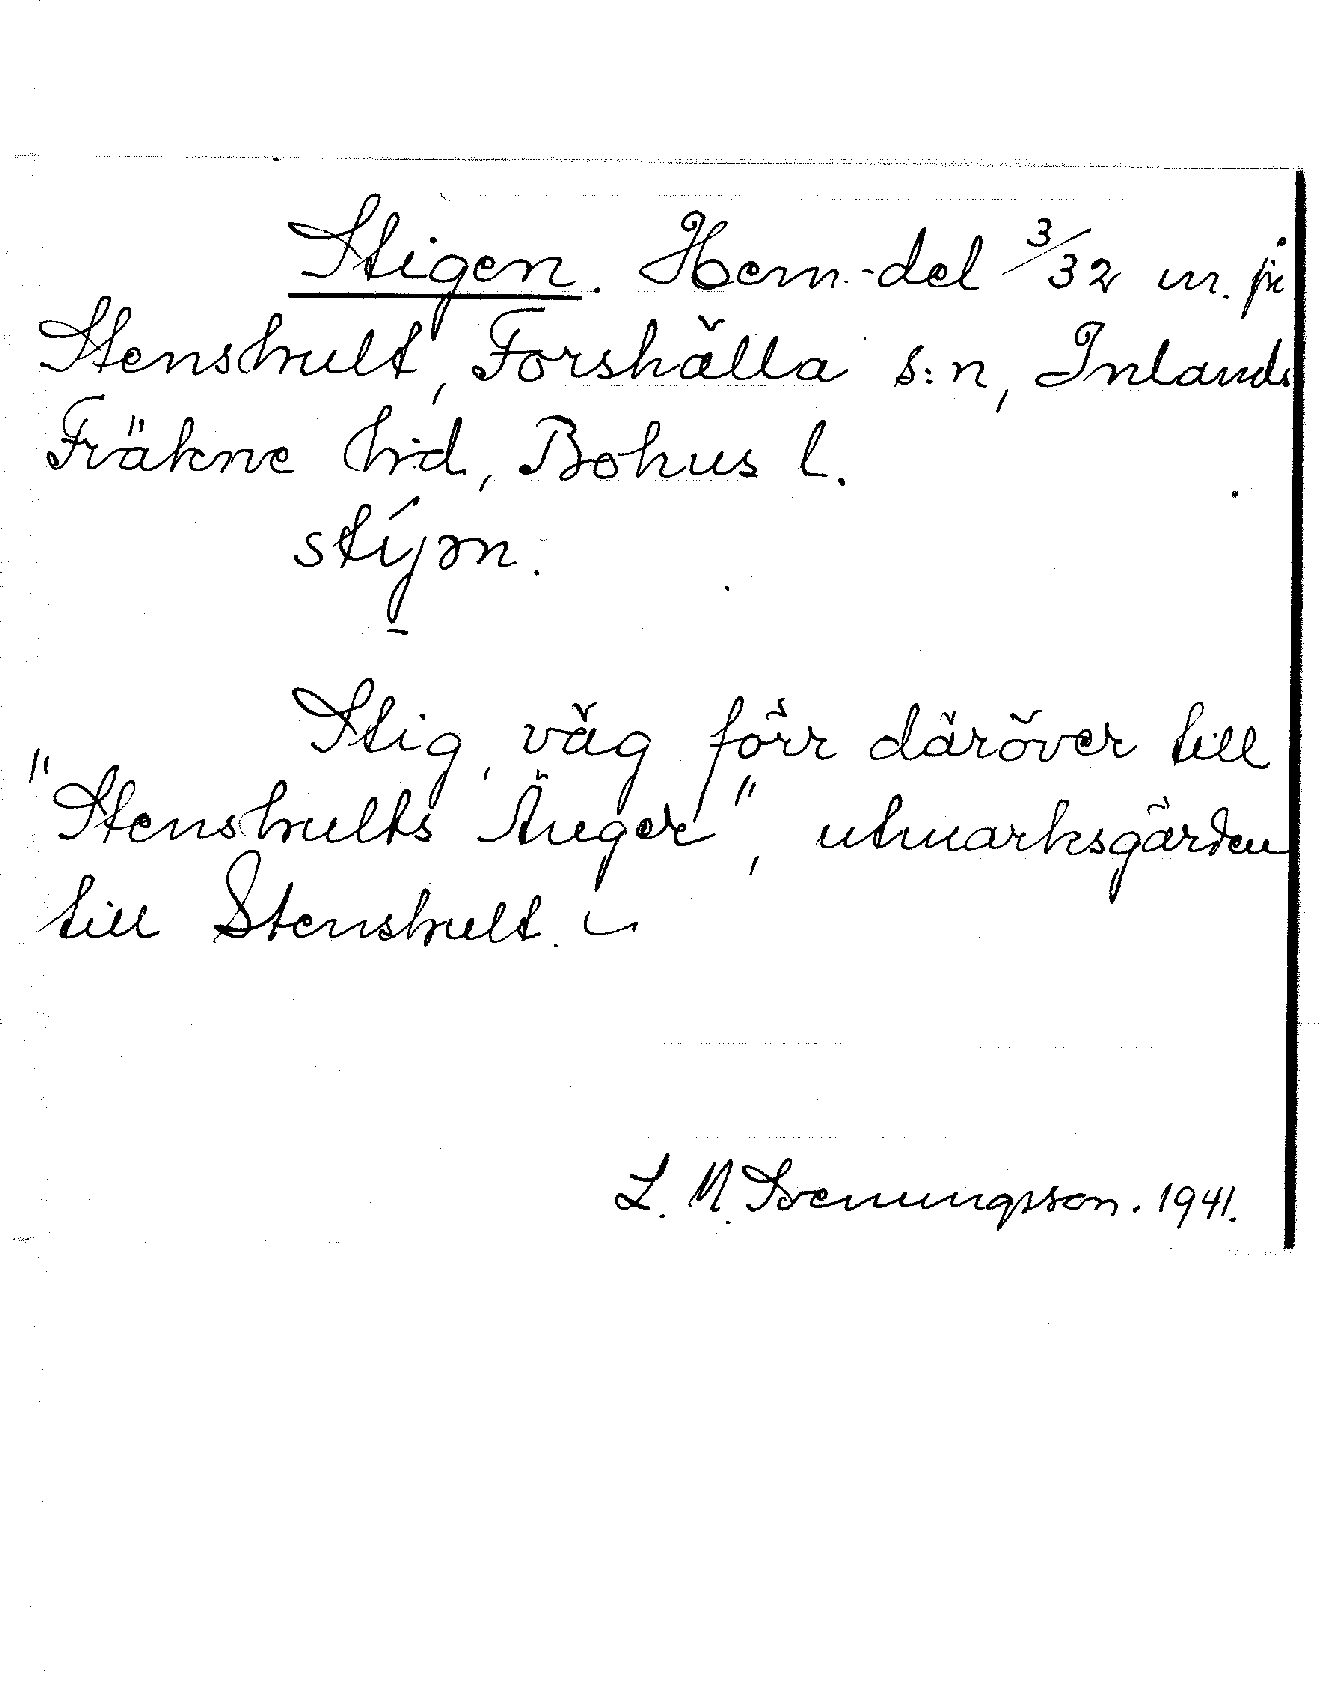 Stigen. Hem.-del 3/32 m. på
Stenshult, Forshälla s:n, Inlands
Fräkne hrd, Bohus l.
stíɣən.
Stig, väg förr däröver till
"Stenshults Änger", utmarksgärden
till Stenshult.
L. M. Svenungsson. 1941.